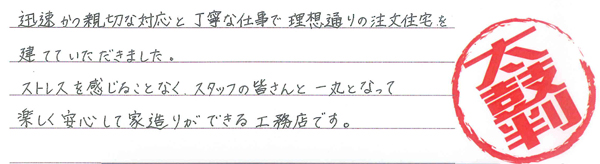 迅速かつ親切な対応と丁寧な仕事で理想通りの注文住宅を
建てていただきました。
ストレスを感じることなく、スタッフの皆さんと一丸となって
楽しく安心して家造りができる工務店です。
太鼓判